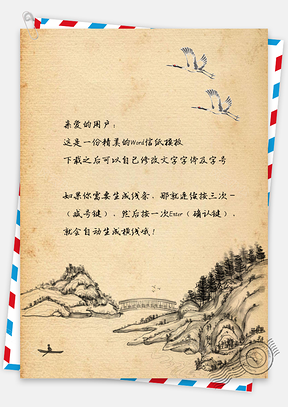 亲爱的用户：
这是一份精美的Word信纸模板
下载之后可以自己修改文字字体及字号
如果你需要生成线条，那就连续按三次－
（减号键），然后按一次Enter（确认键），
就会自动生成横线哦！